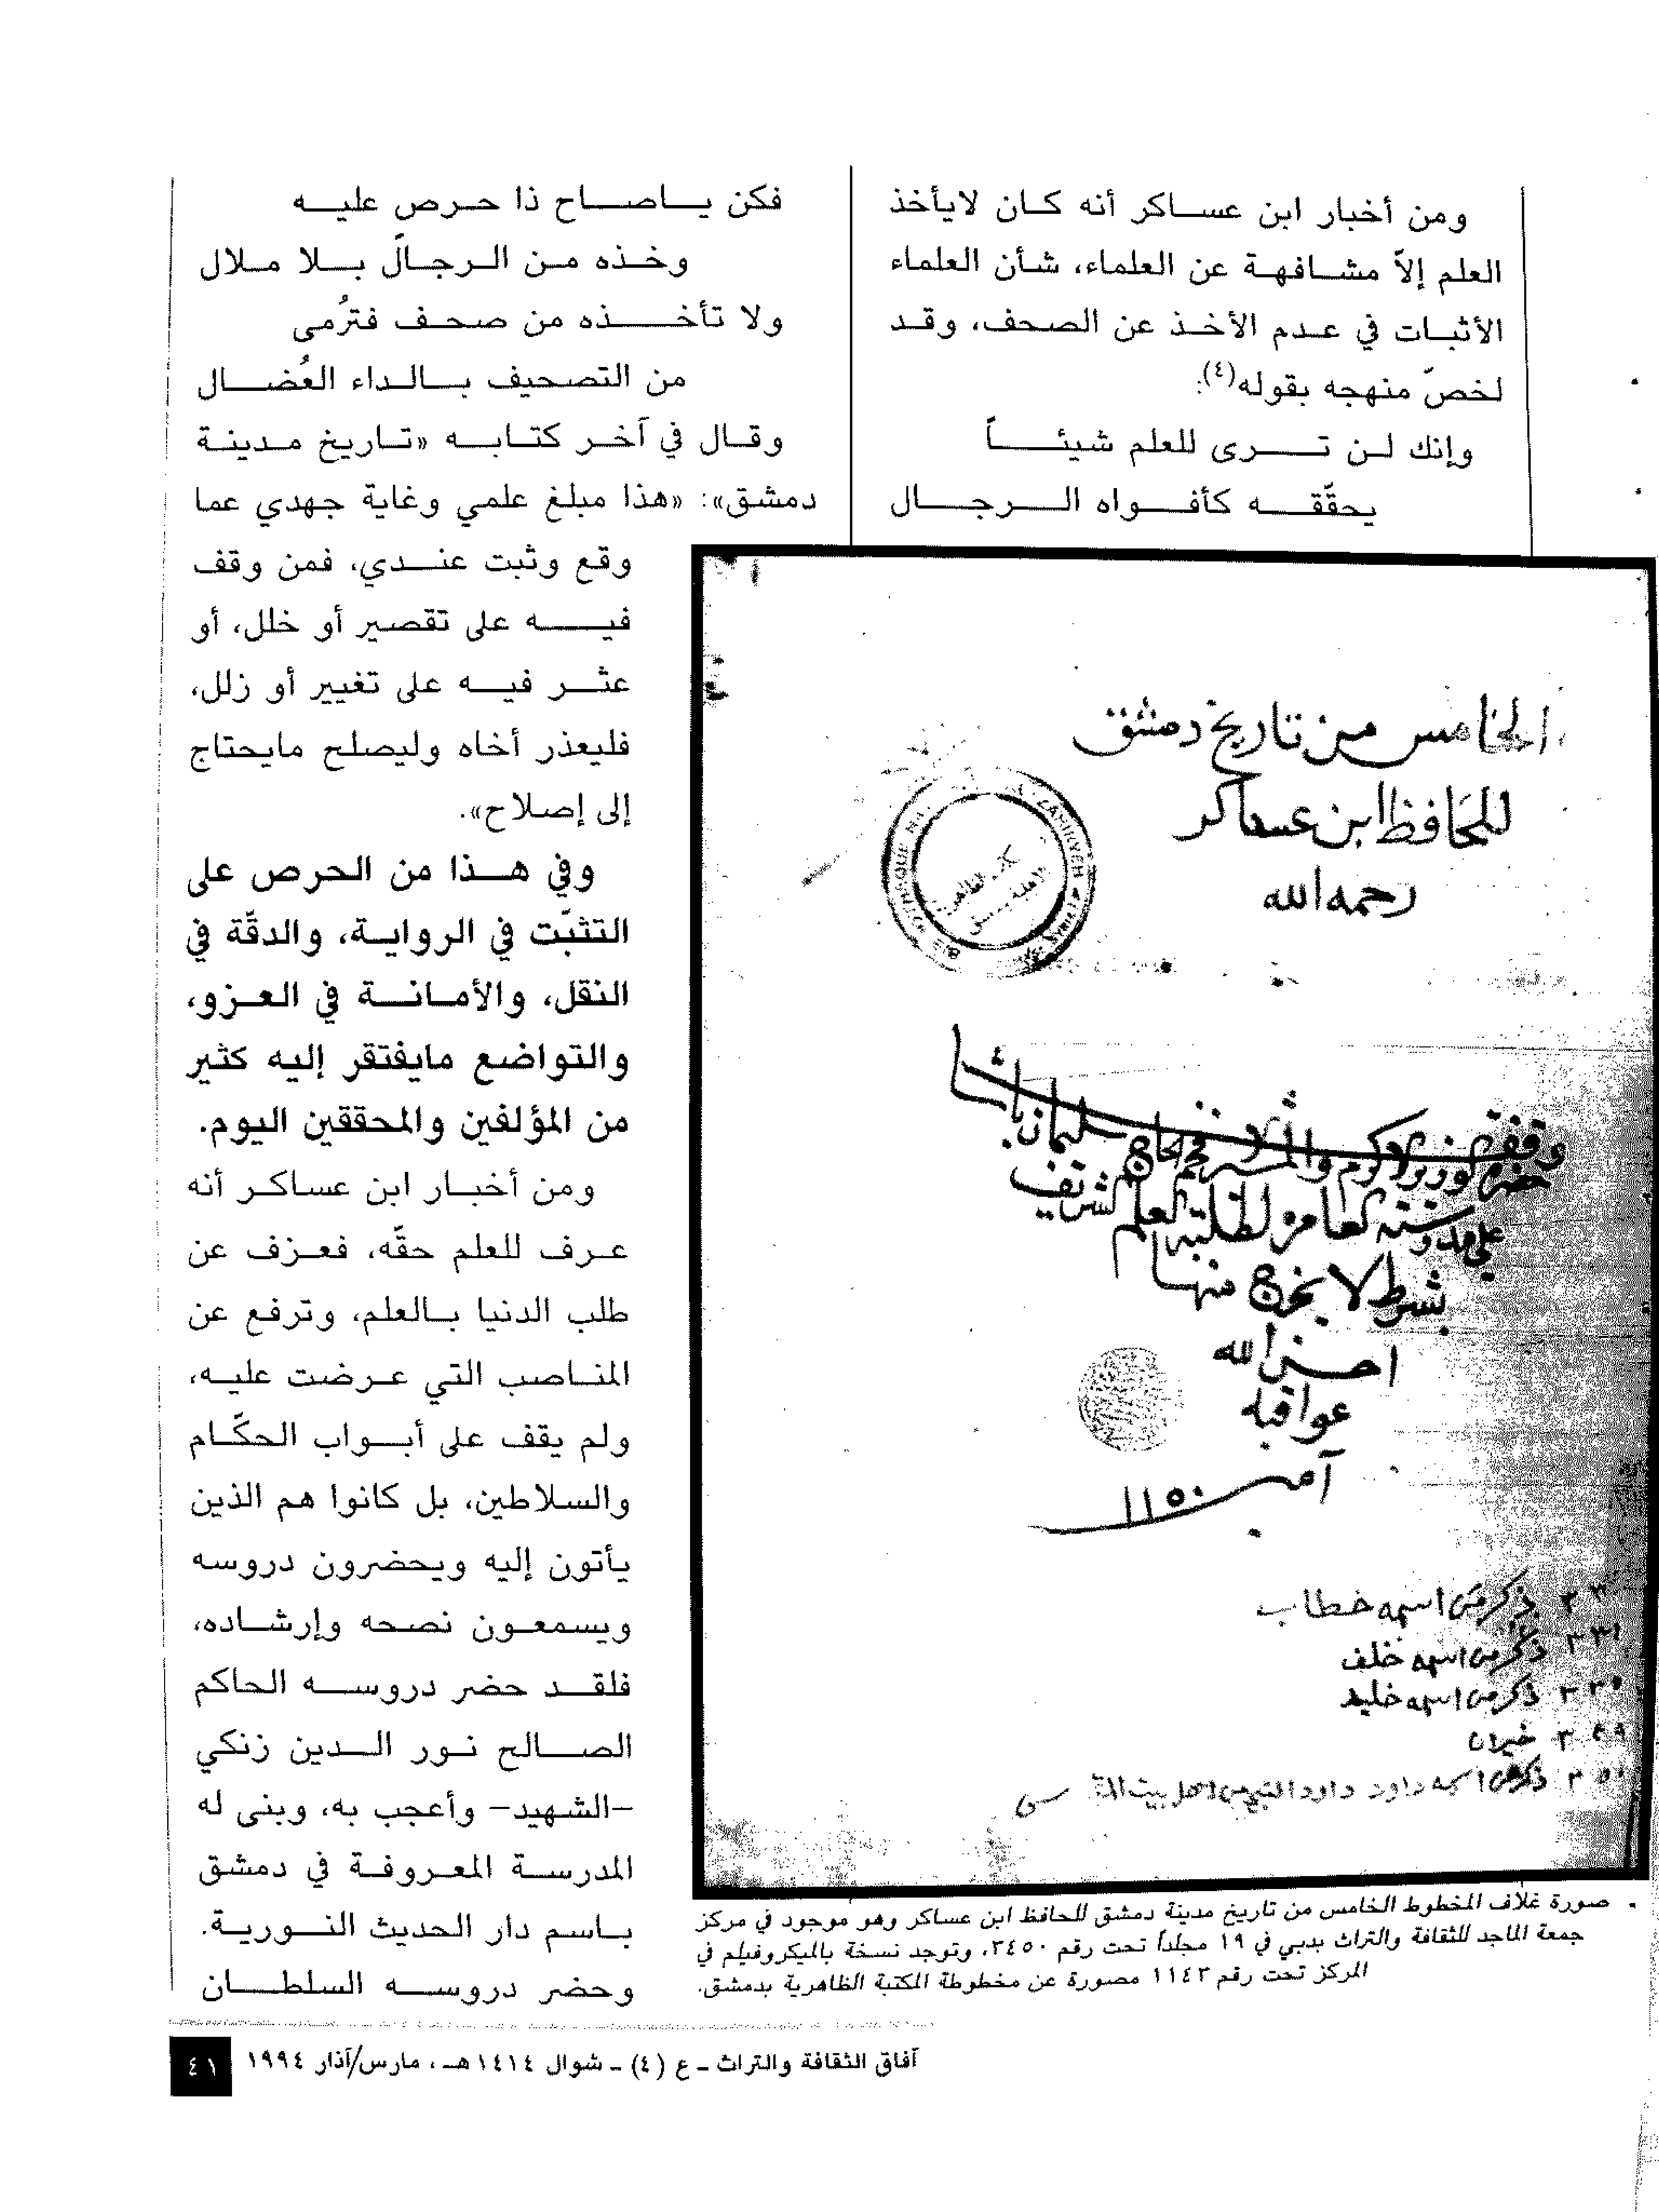 ومن أخبار ابن عساكر أنه كان لايأخذ
العلم إلاّ مشافهة عن العلماء، شأن العلماء
الأثبات في عدم الأخذ عن الصحف، وقد
لخصّ منهجه بقوله(٤):
وإنك لن ترى للعلم شيئاً
يحقّقه كأفواه الرجال
فكن ياصاح ذا حرص عليه
وخذه من الرجال بلا ملال
ولا تأخذه من صحف فتُرمى
من التصحيف بالداء العُضال
وقال في آخر كتابه «تاريخ مدينة
دمشق»: «هذا مبلغ علمي وغاية جهدي عما
وقع وثبت عندي، فمن وقف
فيه على تقصير أو خلل، أو
عثر فيه على تغيير أو زلل،
فليعذر أخاه وليصلح مايحتاج
إلى إصلاح».
وفي هذا من الحرص على
التثبّت في الرواية، والدقّة في
النقل، والأمانة في العزو،
والتواضع مايفتقر إليه كثير
من المؤلفين والمحققين اليوم.
ومن أخبار ابن عساكر أنه
عرف للعلم حقّه، فعزف عن
طلب الدنيا بالعلم، وترفع عن
المناصب التي عرضت عليه،
ولم يقف على أبواب الحكّام
والسلاطين، بل كانوا هم الذين
يأتون إليه ويحضرون دروسه
ويسمعون نصحه وإرشاده،
فلقد حضر دروسه الحاكم
الصالح نور الدين زنكي
–الشهيد– وأعجب به، وبنى له
المدرسة المعروفة في دمشق
باسم دار الحديث النورية.
وحضر دروسه السلطان
الخامس من تاريخ دمشق
للحافظ ابن عساكر
رحمه الله
وقف الوزير الاكرم الحاج سليمان باشا
على مدرسته العامرة لطلبة العلم الشريف
بشرط لا يخرج منها
احسن الله
عواقبه
آمين ١١٥٠
ذكر من اسمه خطاب
ذكر من اسمه خلف
ذكر من اسمه خليد
خيران
ذكر من اسمه داود داود النبي من اهل بيت المقدس
صورة غلاف المخطوط الخامس من تاريخ مدينة دمشق للحافظ ابن عساكر وهو موجود في مركز
جمعة الماجد للثقافة والتراث بدبي في ١٩ مجلداً تحت رقم ٣٤٥٠، وتوجد نسخة بالميكروفيلم في
المركز تحت رقم ١١٤٣ مصورة عن مخطوطة المكتبة الظاهرية بدمشق.
آفاق الثقافة والتراث ـ ع (٤) ـ شوال ١٤١٤هـ، مارس/آذار ١٩٩٤
٤١